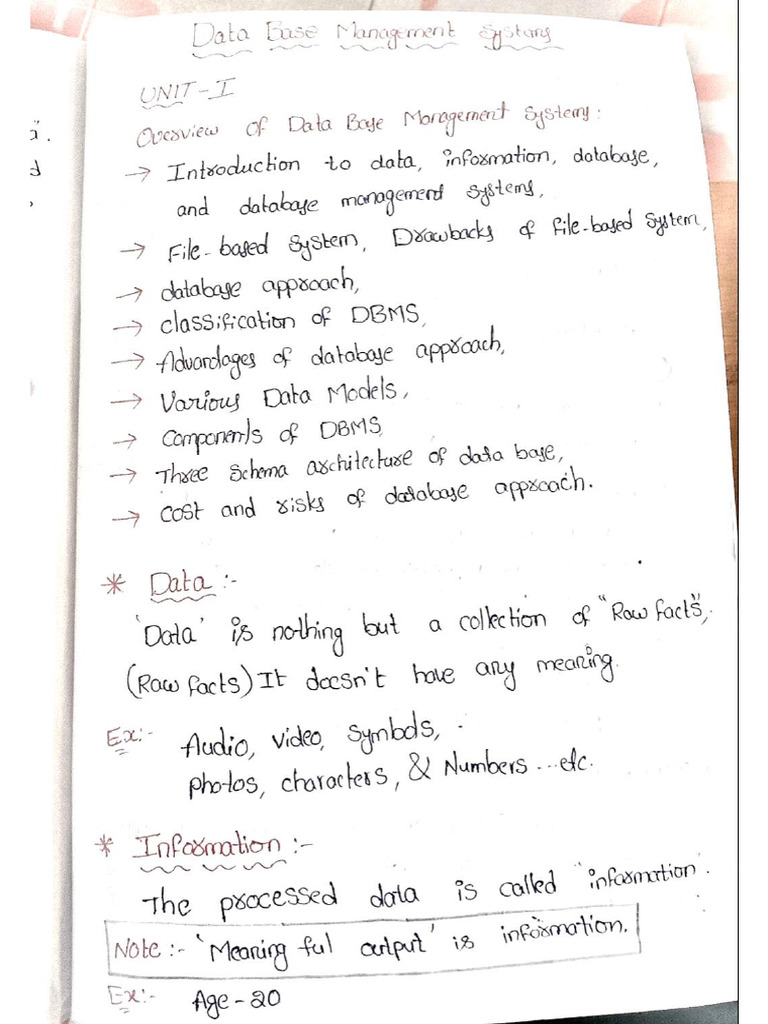 Data Base Management Systems
UNIT-I
Overview of Data Base Management Systems:
→ Introduction to data, information, database,
and database management systems,
→ File-based system, Drawbacks of file-based system,
→ database approach,
→ classification of DBMS,
→ Advantages of database approach,
→ Various Data Models,
→ components of DBMS,
→ Three schema architecture of data base,
→ cost and risks of database approach.
* Data :-
'Data' is nothing but a collection of "Raw facts",
(Raw facts) It doesn't have any meaning.
Ex:- Audio, video, symbols,
photos, characters, & Numbers ...etc.
* Information :-
The processed data is called 'information'.
Note :- 'Meaning ful output' is information.
Ex:- Age - 20